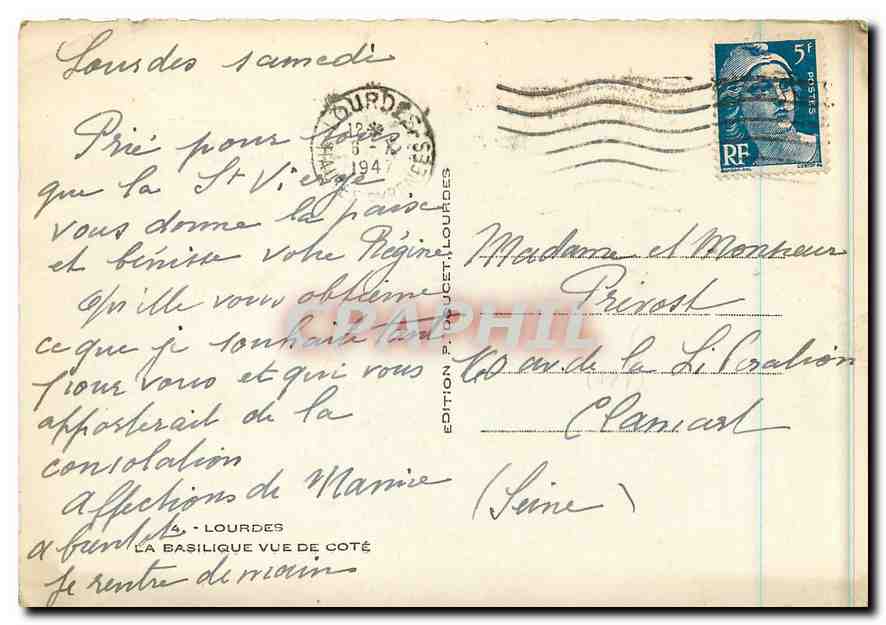 Lourdes samedi
Prié pour vous
que la St Vierge
vous donne la paix
et bénisse votre Régine
Qu'elle vous obtienne
ce que je souhaite tant
pour vous et qui vous
apporterait de la
consolation
Affections de
a bientot
Je rentre demain
4. - LOURDES
LA BASILIQUE VUE DE COTÉ
EDITION P. DOUCET, LOURDES
LOURDES
12 *
6 -
1947
5F
POSTES
RF
Madame et Monsieur
Prévost
av. de la Libération
Clamart
(Seine)
CRAPHIL